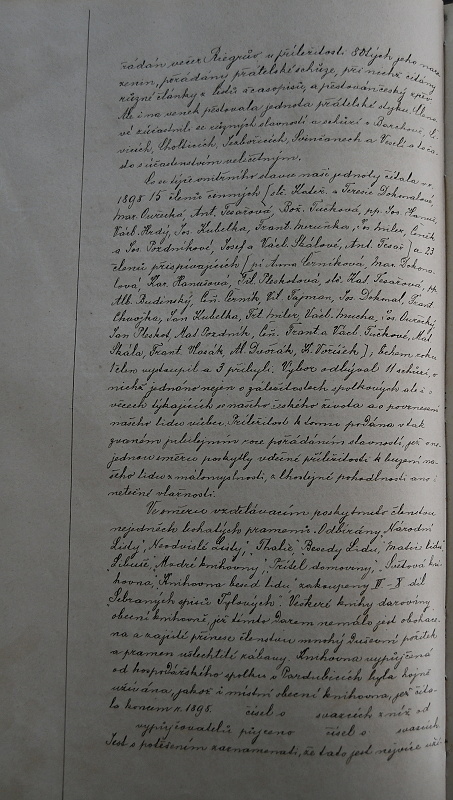 řádán večer Riegrův u příležitosti 80tých jeho naro-
zenin, pořádány přátelské schůze, při nichž čítány
různé články z listů a časopisů, a předovánčeský zpěv.
Ale i na venek pěstovala jednota přátelské styky. Členo-
vé zúčastnili se různých slavností a schůzí v Barchově,
vicích, Chotticích, Svinčanech a Veselí a to ča-
sto s účastenstvím nečetným.
Co se týče vnitřního stavu naší jednoty čítala v r.
1898 15 členů činných (sl. Kateř. a Terezie Dokonalová,
Mar. Ouřecká, Ant. Tesařová, Bož. Tučková, pp. Jos. Hanuš,
Václ. Hrdý, Jos. Kubelka, Frant. Meruňka, Jos. Miler, Čeněk
a Jos. Pozdníkové, Josef a Václ. Skálové, Ant. Tesař) a 23
členů přispívajících (pí Anna Černíková, Mar. Dokona-
lová, Kar. Hanušová, Fil. Pleskotová, sl. Kat. Tesařová, pp.
Alb. Budínský, Čeň. Černík, Vil. Fajman, Jos. Dokonal, Frant.
Chvojka, Jan Kubelka, Fil. Miler, Václ. Mucha, Jos. Ouřecký,
Jan Pleskot, Mat. Pozdník, Čeň. Frant. a Václ. Tučkové, Mat.
Skála, Frant. Husák, Al. Dvořák, Voříšek), během roku
1 člen vystoupil a 3 přibyli. Výbor odbýval 11 schůzí, v
nichž jednáno nejen o záležitostech spolkových ale i o
věcech týkajících se našeho českého života a o povznesení
našeho lidu vůbec. Příležitost k tomu podána v tak
zvaném jubilejním roce pořádáním slavností, jež v ne-
jednom směru poskytly vděčné příležitosti k buzení na-
šeho lidu z malomyslnosti, z lhostejné pohodlnosti ano i
netečné vlažnosti.
Ve směru vzdělávacím poskytnuto členstvu
nejedněch bohatých pramenů. Odbírány „Národní
Listy“, „Neodvislé Listy“, „Thalie“, „Besedy Lidu“, „Matice lidu“,
„Libuše“, „Modré knihovny“, „Přítel domoviny“, „Světová kni-
hovna“, „Knihovna besed lidu“, zakoupeny III - X díl
„Sebraných spisů Tylových“. Veškeré knihy darovány
obecní knihovně, jež tímto darem nemálo jest obohace-
na a zajisté přinese členstvu mnohý duševní požitek
a pramen ušlechtilé zábavy. Knihovna vypůjčená
od hospodářského spolku v Pardubicích byla hojně
užívána, jakož i místní obecní knihovna, jež číta-
la koncem r. 1898 čísel o svazcích z níž od
vypůjčovatelů půjčeno čísel o svazcích
Jest s potěšením zaznamenati, že tato jest nejvíce